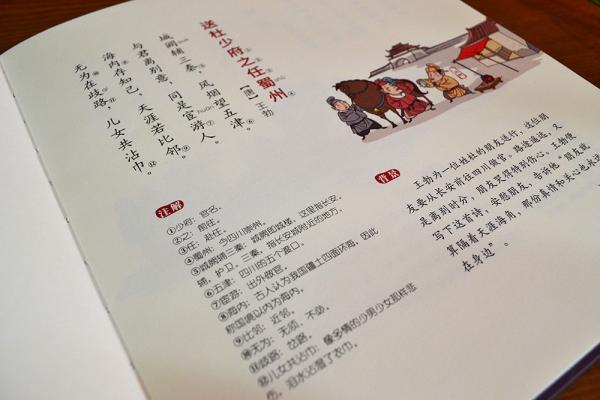 送杜少府之任蜀州
〔唐〕王勃
城阙辅三秦，风烟望五津。
与君离别意，同是宦(huàn)游人。
海内存知己，天涯若比邻。
无为在歧路，儿女共沾巾。
注解
①少府：官名。
②之：前往。
③任：赴任。
④蜀州：今四川崇州。
⑤城阙辅三秦：城阙即城楼，这里指长安。
辅，护卫。三秦，指长安城附近的地方。
⑥五津：四川的五个渡口。
⑦宦游：出外做官。
⑧海内：古人认为我国疆土四面环海，因此
称国境以内为海内。
⑨比邻：近邻。
⑩无为：无须，不必。
⑪歧路：岔路。
⑫儿女共沾巾：像多情的少男少女那样悲
伤，泪水沾湿了衣巾。
背景
王勃为一位姓杜的朋友送行，这位朋
友要从长安前往四川做官。路途遥远，又
是离别时分，朋友哭得特别伤心。王勃便
写下这首诗，安慰朋友，告诉他“朋友就
算隔着天涯海角，那份真情和关心也永远
在身边”。